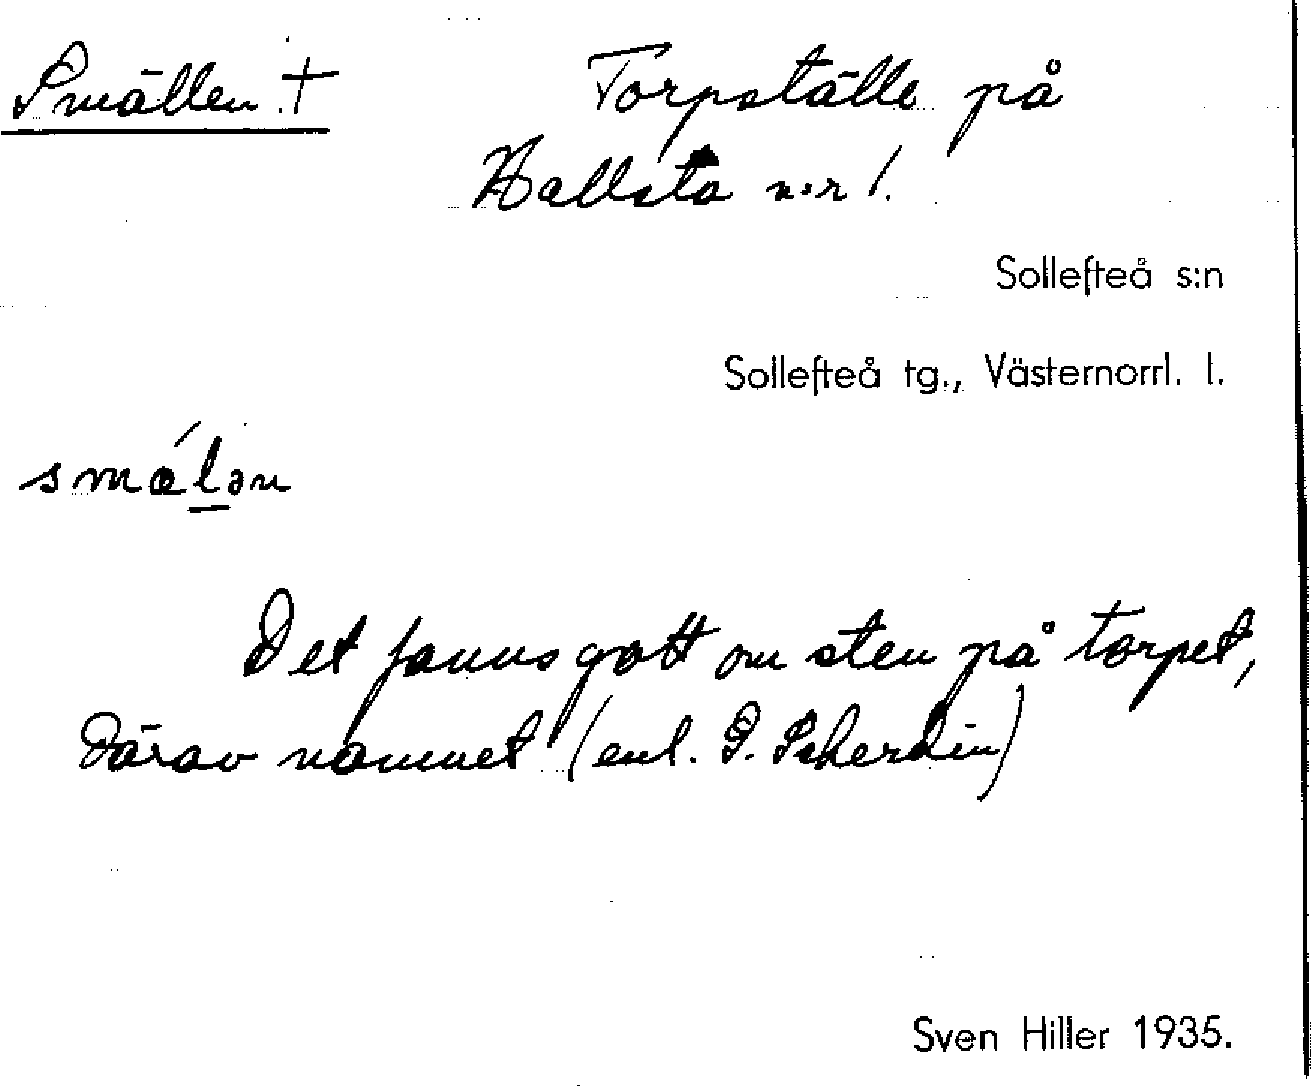 Smällen †
Torpställe på
Hallsta n:r 1.
Sollefteå s:n
Sollefteå tg., Västernorrl. l.
smǽl̲ən
Det fanns gott om sten på torpet,
därav namnet (enl. P. Scherdin)
Sven Hiller 1935.